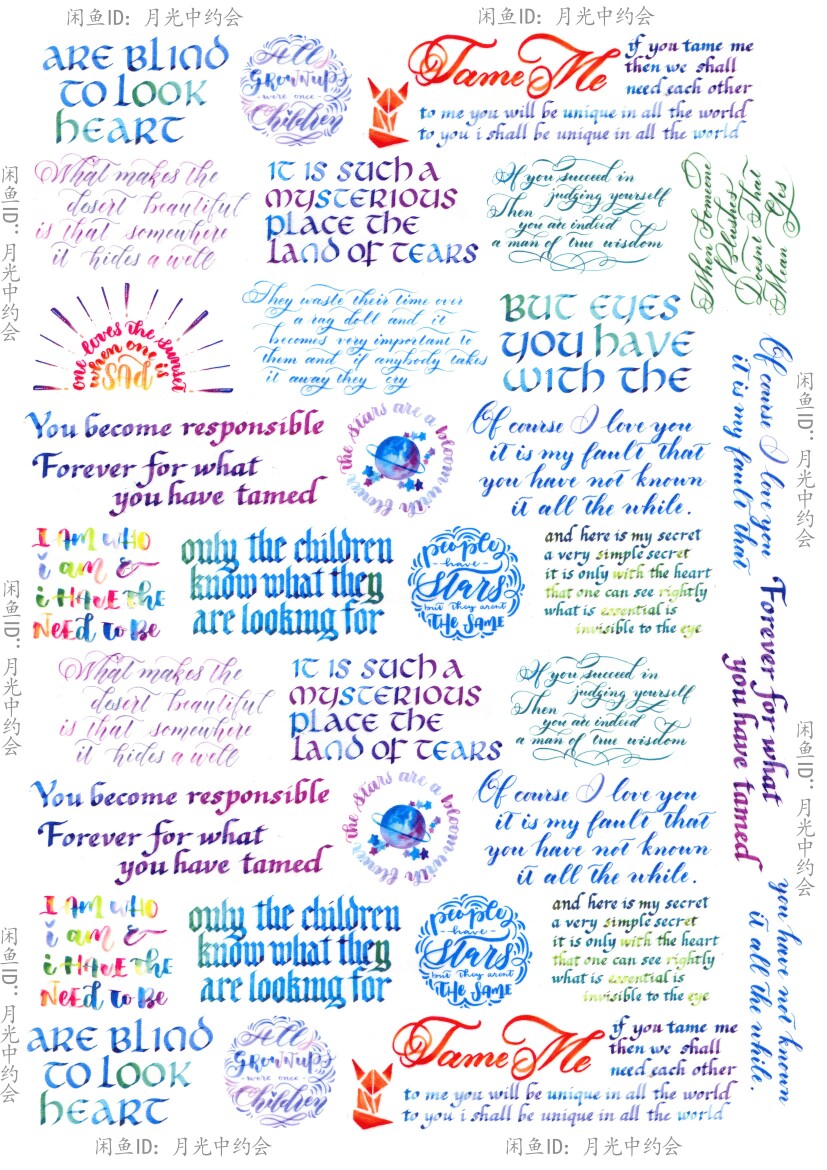 闲鱼ID：月光中约会
闲鱼ID：月光中约会
ARE BLIND
TO LOOK
HEART
All
GROWNUPS
were once
Children
Tame Me
if you tame me
then we shall
need each other
to me you will be unique in all the world
to you i shall be unique in all the world
闲鱼ID：月光中约会
What makes the
desert beautiful
is that somewhere
it hides a well
IT IS SUCH A
MYSTERIOUS
PLACE THE
LAND OF TEARS
If you succeed in
judging yourself
Then
you are indeed
a man of true wisdom
When Someone
Blushes
Doesnt That
Mean Yes
one loves the sunset
when one is
SAD
They waste their time over
a rag doll and it
becomes very important to
them and if anybody takes
it away they cry
BUT EYES
YOU HAVE
WITH THE
Of course I love you
it is my fault that
闲鱼ID：月光中约会
You become responsible
Forever for what
you have tamed
the stars are a bloom with flower
Of course I love you
it is my fault that
you have not known
it all the while.
I AM WHO
i am &
i HAVE THE
NEED to Be
only the children
know what they
are looking for
people
have
Stars
but they arent
THE SAME
and here is my secret
a very simple secret
it is only with the heart
that one can see rightly
what is essential is
invisible to the eye
闲鱼ID：月光中约会
Forever for what
you have tamed
What makes the
desert beautiful
is that somewhere
it hides a well
IT IS SUCH A
MYSTERIOUS
PLACE THE
LAND OF TEARS
If you succeed in
judging yourself
Then
you are indeed
a man of true wisdom
闲鱼ID：月光中约会
You become responsible
Forever for what
you have tamed
the stars are a bloom with flower
Of course I love you
it is my fault that
you have not known
it all the while.
you have not known
it all the while.
I AM WHO
i am &
i HAVE THE
NEED to Be
only the children
know what they
are looking for
people
have
Stars
but they arent
THE SAME
and here is my secret
a very simple secret
it is only with the heart
that one can see rightly
what is essential is
invisible to the eye
闲鱼ID：月光中约会
ARE BLIND
TO LOOK
HEART
All
GROWNUPS
were once
Children
Tame Me
if you tame me
then we shall
need each other
to me you will be unique in all the world
to you i shall be unique in all the world
闲鱼ID：月光中约会
闲鱼ID：月光中约会